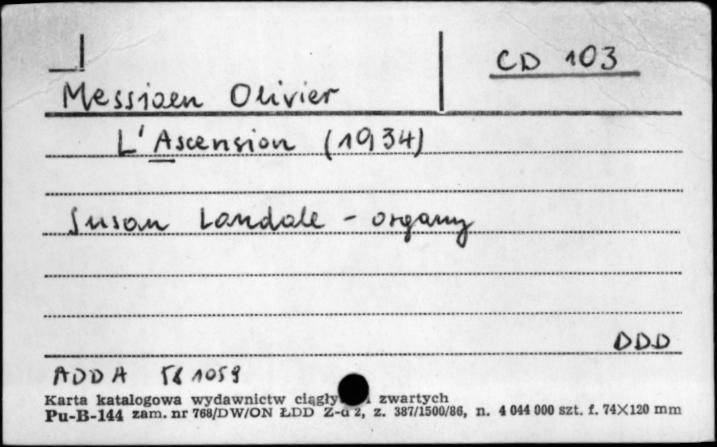 CD 103
Messiaen Olivier
L'Ascension (1934)
Susan Landale - organy
DDD
ADDA 581059
Karta katalogowa wydawnictw ciągły i zwartych
Pu-B-144 zam. nr 768/DW/ON ŁDD Z-d 2, z. 387/1500/86, n. 4 044 000 szt. f. 74×120 mm